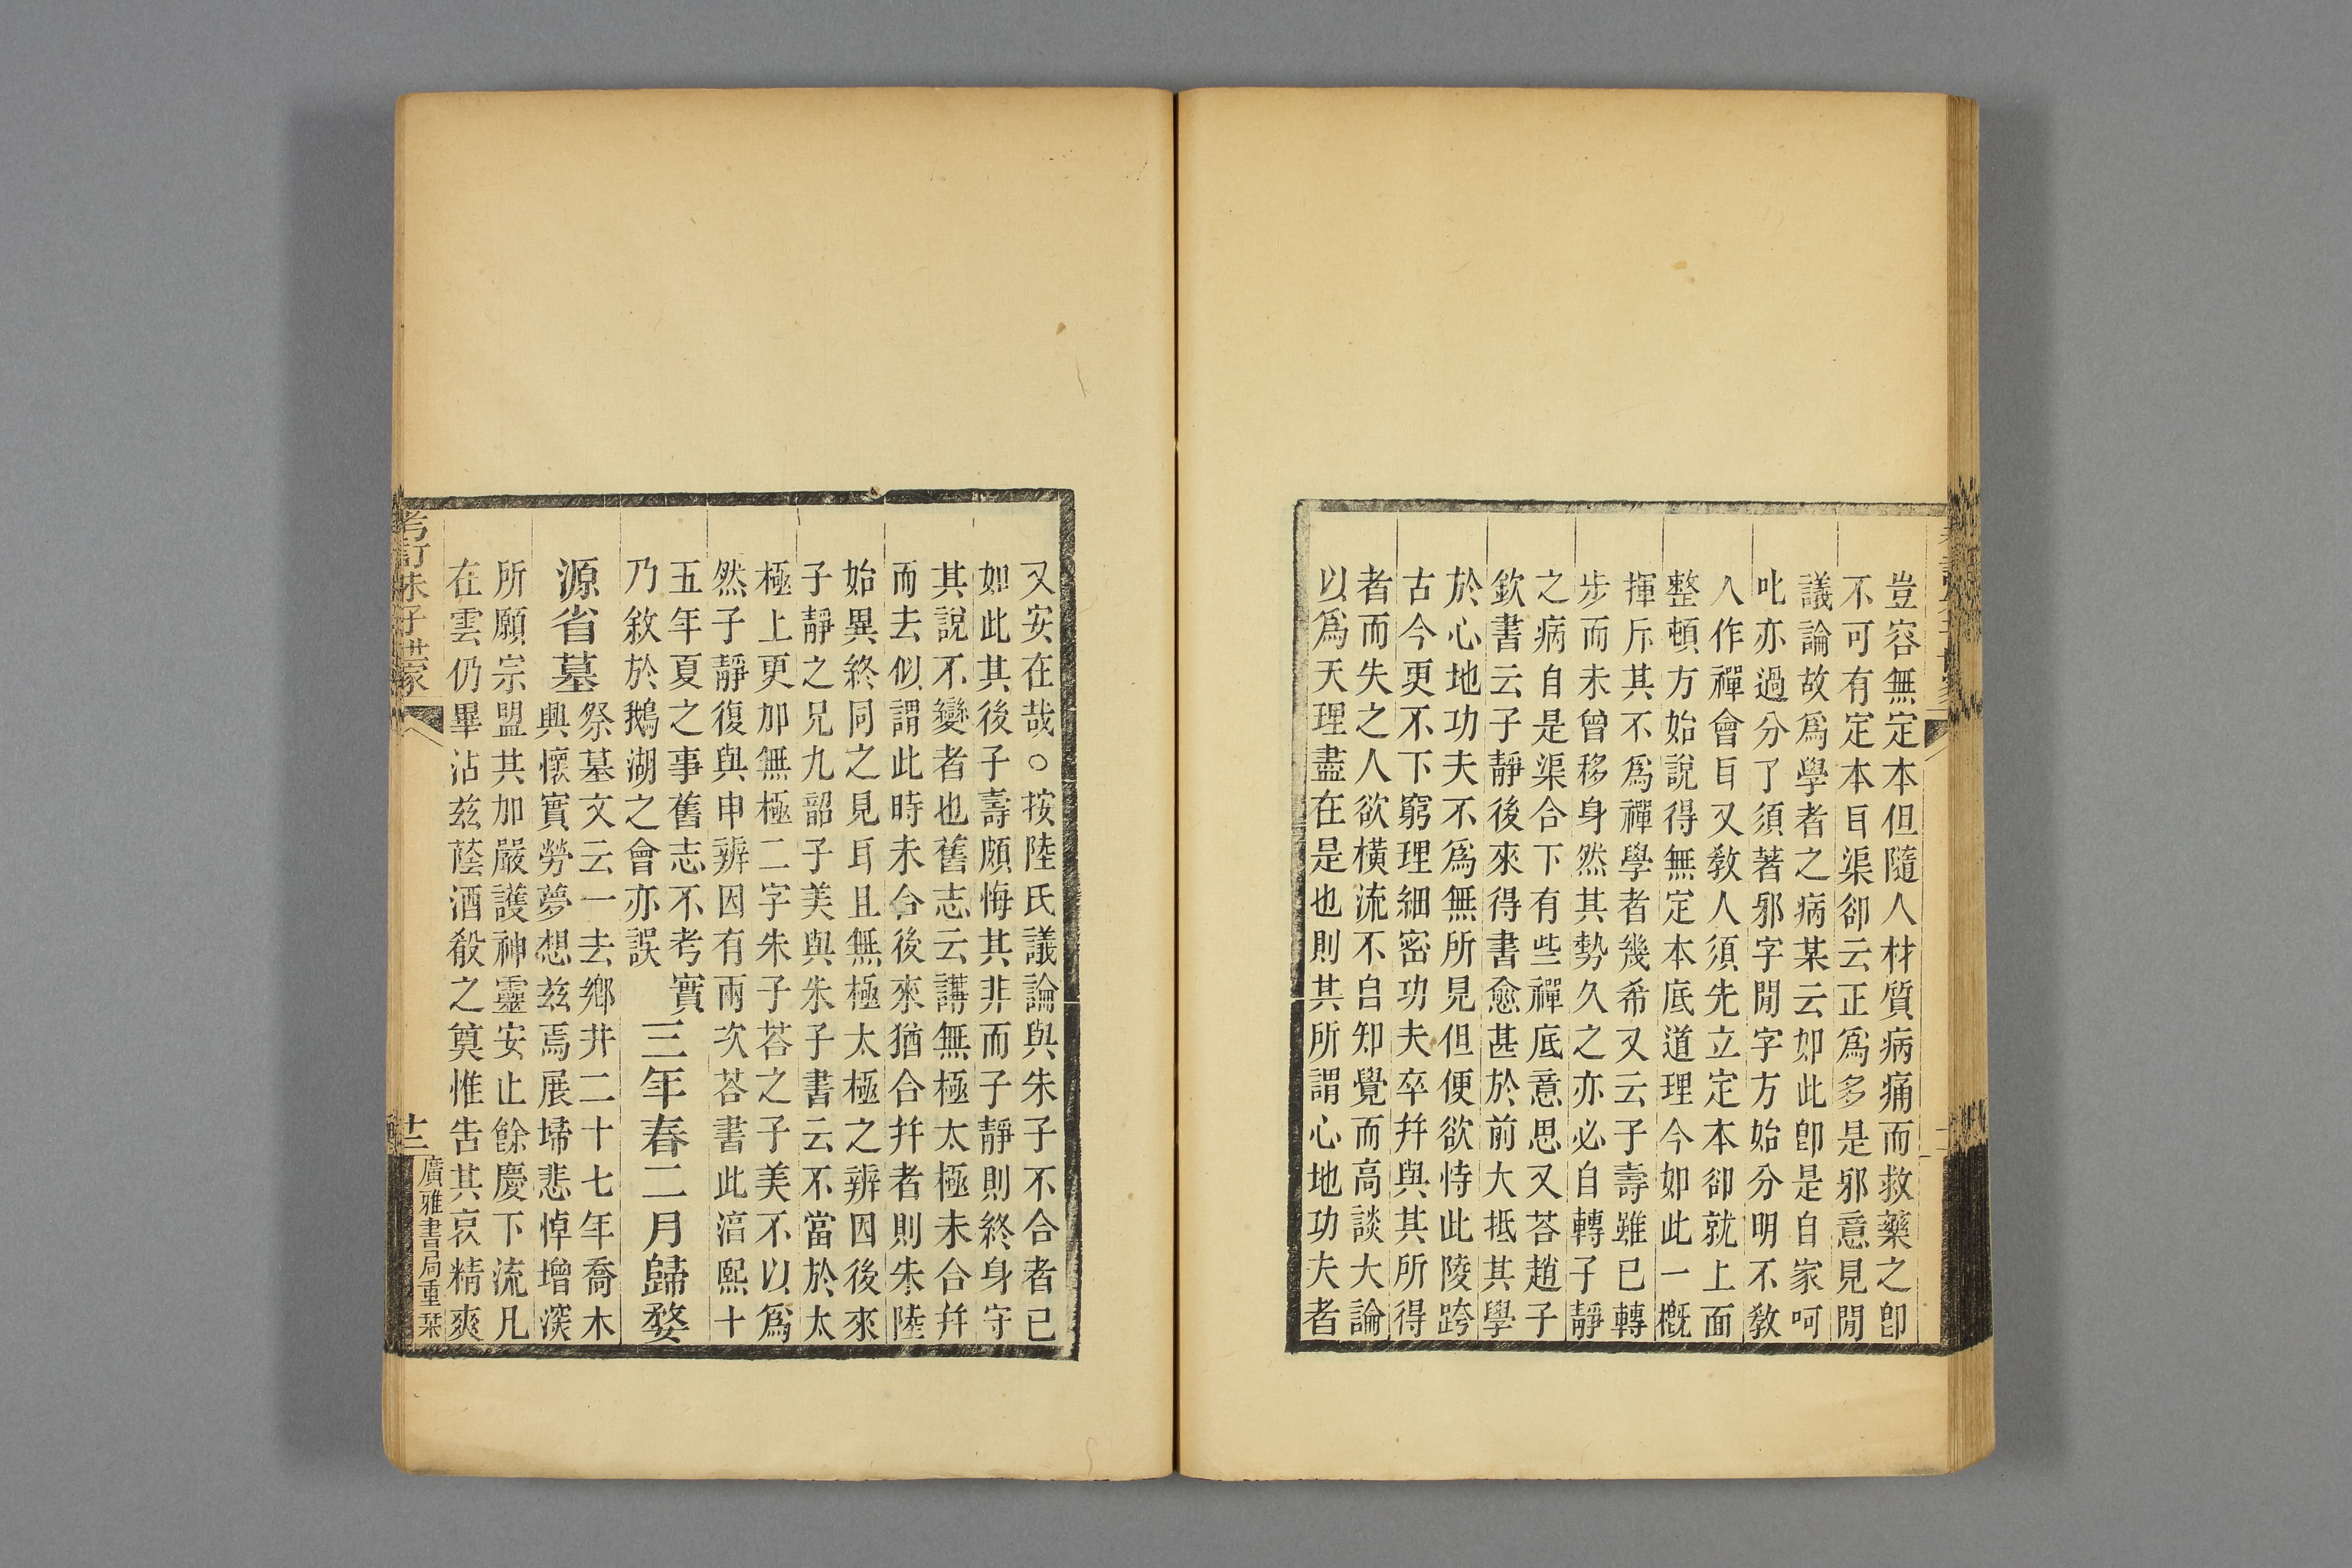 豈容無定本但隨人材質病痛而救藥之卽
不可有定本目渠卻云正爲多是邪意見閒
議論故爲學者之病某云如此卽是自家呵
叱亦過分了須著邪字閒字方始分明不敎
人作禪會目又敎人須先立定本卻就上面
整頓方始說得無定本底道理今如此一槪
揮斥其不爲禪學者幾希又云子壽雖已轉
步而未曾移身然其勢久之亦必自轉子靜
之病自是渠合下有些禪底意思又荅趙子
欽書云子靜後來得書愈甚於前大抵其學
於心地功夫不爲無所見但便欲恃此陵跨
古今更不下窮理細密功夫卒幷與其所得
者而失之人欲橫流不自知覺而高談大論
以爲天理盡在是也則其所謂心地功夫者
又安在哉○按陸氏議論與朱子不合者已
如此其後子壽頗悔其非而子靜則終身守
其說不變者也舊志云講無極太極未合幷
而去似謂此時未合後來猶合幷者則朱陸
始異終同之見耳且無極太極之辨因後來
子靜之兄九韶子美與朱子書云不當於太
極上更加無極二字朱子荅之子美不以爲
然子靜復與申辨因有兩次荅書此淳熙十
五年夏之事舊志不考實
乃敘於鵝湖之會亦誤
三年春二月歸婺
源省墓
祭墓文云一去鄉井二十七年喬木
興懷實勞夢想兹焉展埽悲悼增深
所願宗盟共加嚴護神靈安止餘慶下流凡
在雲仍畢沾兹蔭酒殽之奠惟告其哀精爽
考訂朱子世家
十二
廣雅書局重栞